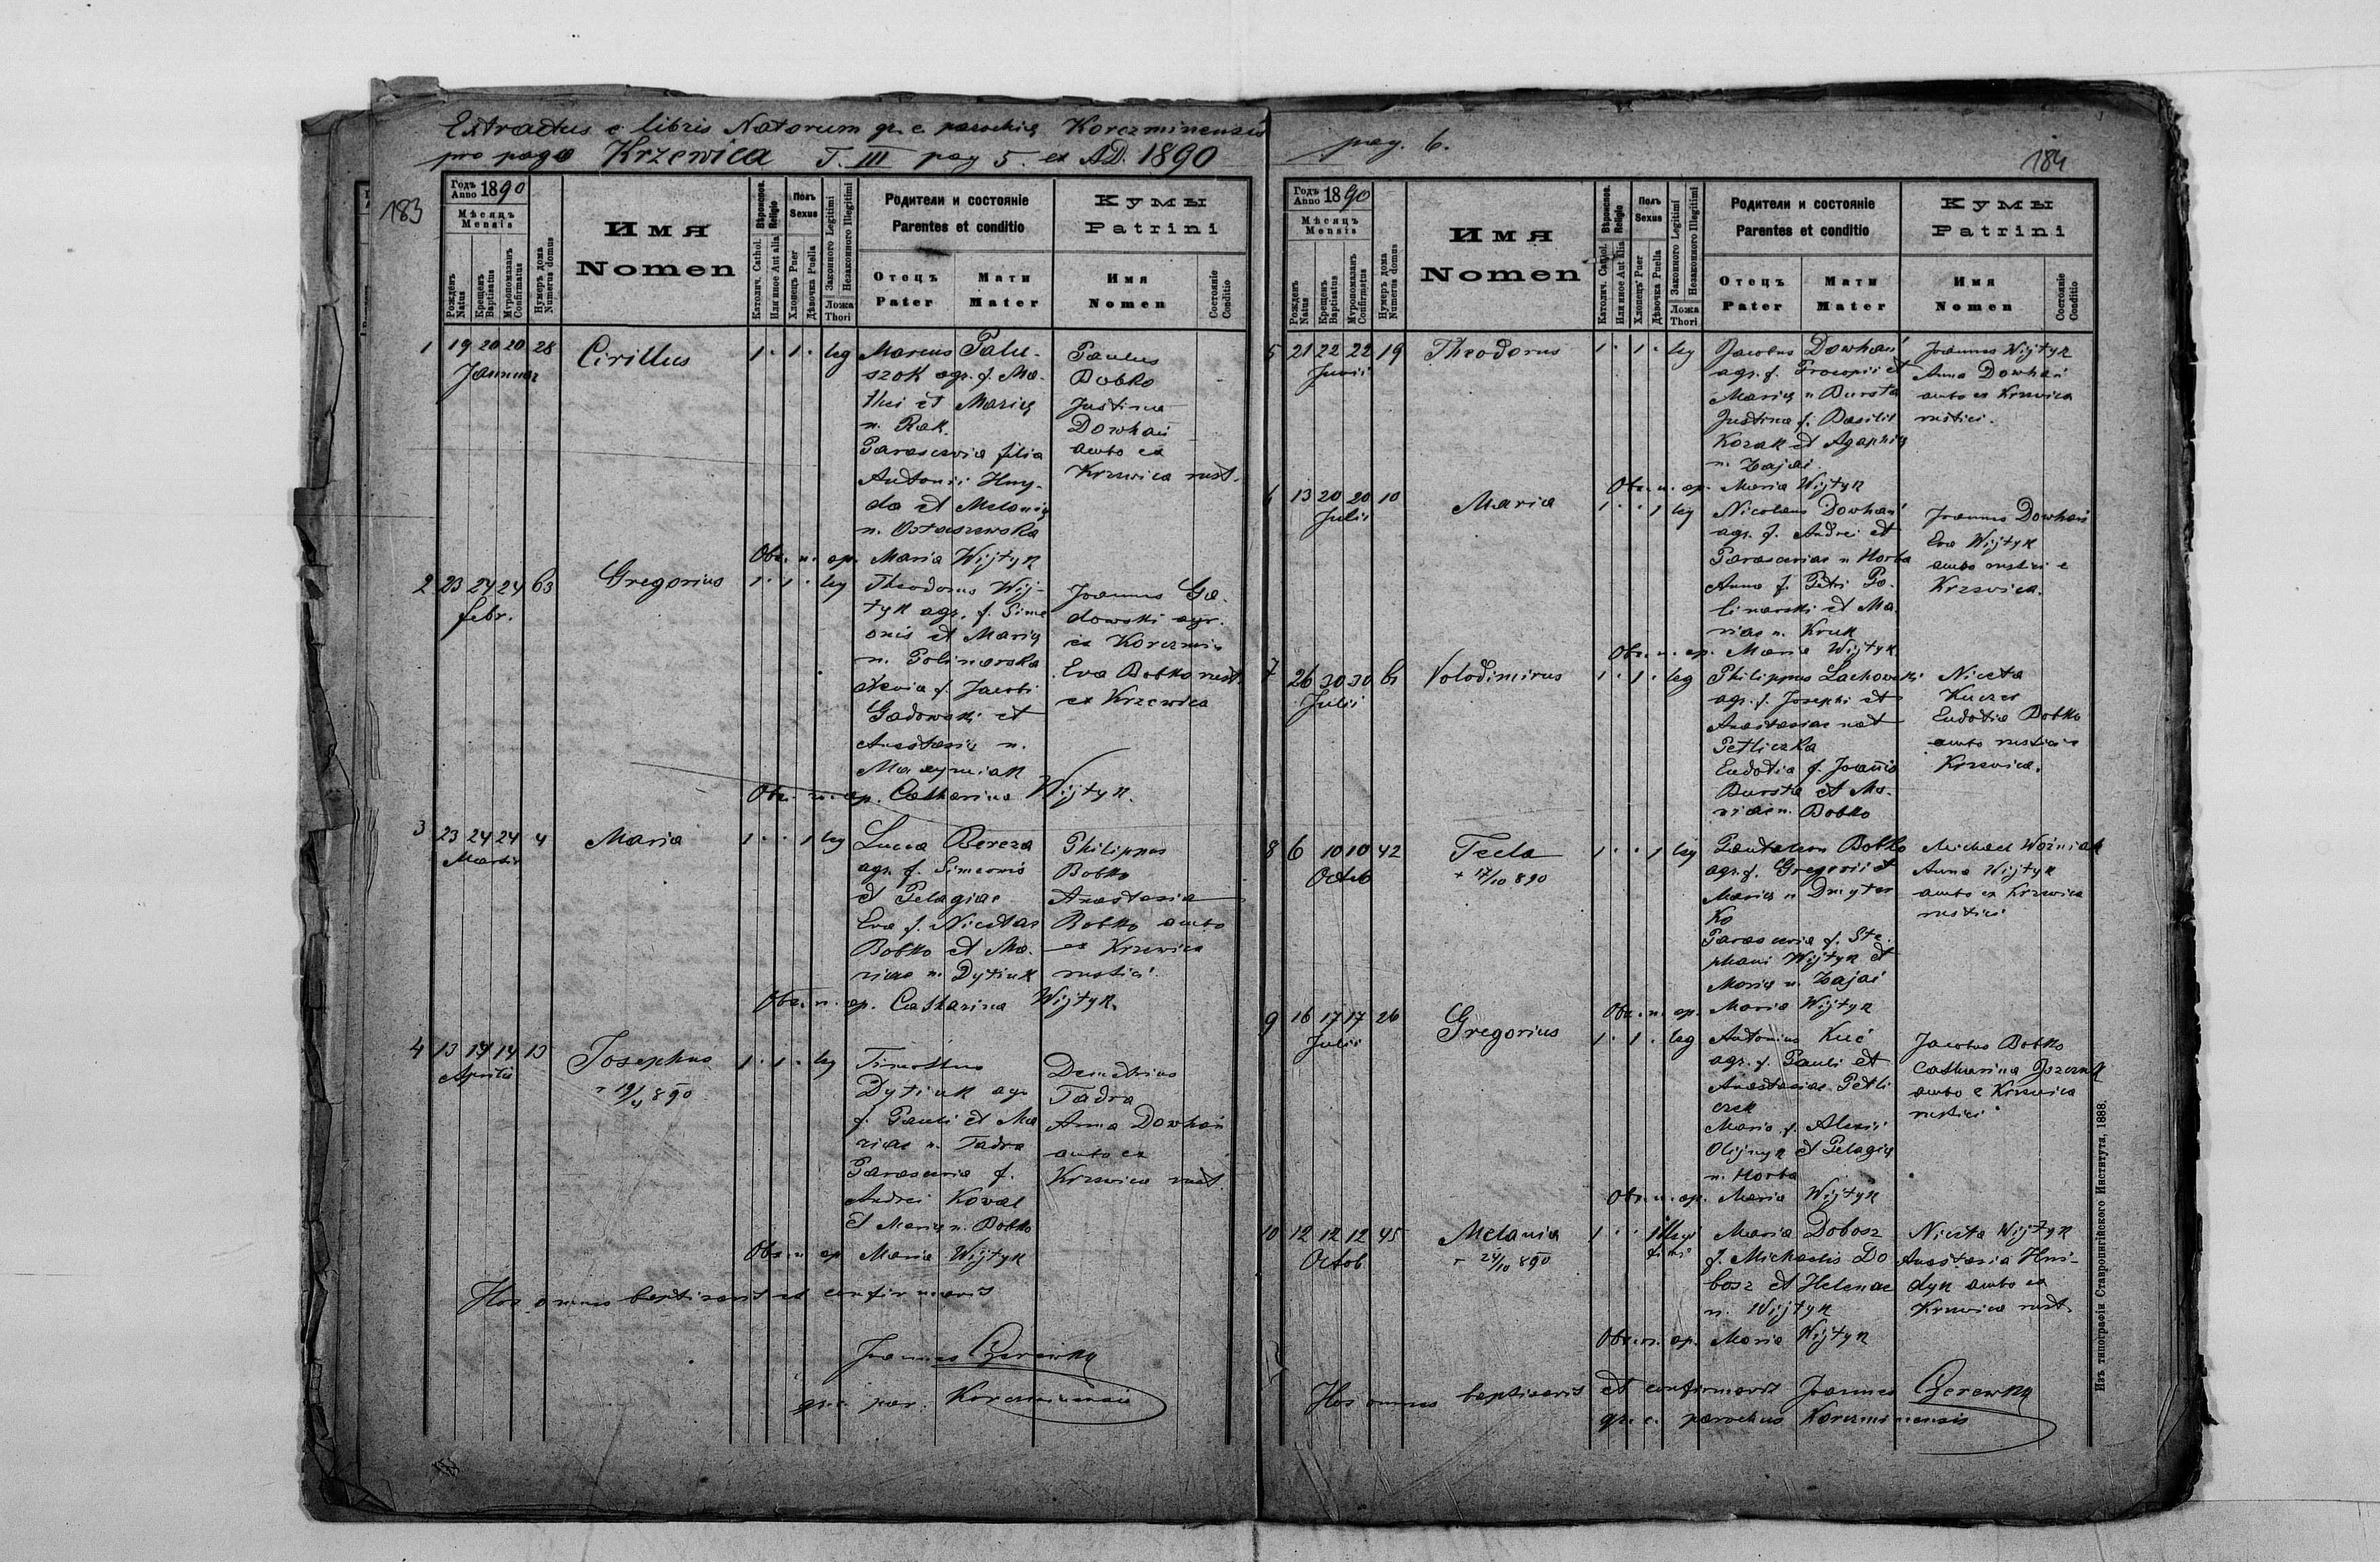 Extractus e libris Natorum gr. c. parochiæ Korczminensis
pro pago Krzewica T. III pag 5. ex AD. 1890
183
Годъ Anno 1890
Мѣсяцъ
Mensis
Рожденъ Natus
Крещенъ Baptisatus
Мѵропомазанъ Confirmatus
Нумеръ дома Numerus domus
Имя
Nomen
Вѣроисповѣд. Religio
Католич. Cathol.
Или иное Aut alia
Полъ
Sexus
Хлопецъ Puer
Дѣвочка Puella
Законного Legitimi
Незаконного Illegitimi
Ложа
Thori
Родители и состояніе
Parentes et conditio
Отецъ
Pater
Мати
Mater
Кумы
Patrini
Имя
Nomen
Состояніе
Conditio
1 19 20 20 28 Cirillus 1 · 1 · leg
Januar
Marcus Palu-
szok agr. f. Ma-
thei et Mariæ
n. Rak.
Parascevia filia
Antonii Hny-
da et Melaniæ
n. Ostaszewska
Paulus
Bobko
Justina
Dowhań
ambo ex
Krzewica rust.
Obs. n. ap. Maria Wijtyk
2 23 24 24 63 Gregorius 1 · 1 · leg
febr.
Theodorus Wij-
tyk agr. f. Sime
onis et Mariæ
n. Polinarska
Xenia f. Jacobi
Gadowski et
Anastasiæ n.
Maxymiak
Joannes Ga-
dowski agr.
ex Korczmin
Eva Bobko rust.
ex Krzewica
Obs. n. ap. Catharina Wijtyk.
3 23 24 24 4 Maria 1 · · 1 leg
Martii
Lucca Bereza
agr. f. Simeonis
et Pelagiae
Eva f. Nicetas
Bobko et Ma-
riae n. Dytiuk
Philippus
Bobko
Anastasia
Bobko ambo
ex Krzewica
rustici
Obs. n. ap. Catharina Wijtyk.
4 13 14 14 13 Josephus 1 · 1 · leg
Aprilis
+ 19/4 890
Timotheus
Dytiuk agr
f. Pauli et Ma
riae n. Tadra
Parascevia f.
Andrei Kowal
et Mariæ n. Bobko
Demetrius
Tadra
Anna Dowhań
ambo ex
Krzewica rust
Obs. n. ap Maria Wijtyk
Hos omnes baptisavit et confirmavit
Joannes Czerewko
gr. c. par. Korczminensis
pag. 6.
184
Годъ Anno 1890
Мѣсяцъ
Mensis
Рожденъ Natus
Крещенъ Baptisatus
Мѵропомазанъ Confirmatus
Нумеръ дома Numerus domus
Имя
Nomen
Вѣроисповѣд. Religio
Католич. Cathol.
Или иное Aut alia
Полъ
Sexus
Хлопецъ Puer
Дѣвочка Puella
Законного Legitimi
Незаконного Illegitimi
Ложа
Thori
Родители и состояніе
Parentes et conditio
Отецъ
Pater
Мати
Mater
Кумы
Patrini
Имя
Nomen
Состояніе
Conditio
5 21 22 22 19 Theodorus 1 · 1 · leg
Junii
Jacobus Dowhań
agr. f. Procopii et
Mariæ n Bursta
Justina f. Basilii
Kozak et Agaphiæ
n. Zajac
Joannes Wijtyk
Anna Dowhań
ambo ex Krzewica
rustici.
Obs. n. ap. Maria Wijtyk
6 13 20 20 10 Maria 1 · · 1 leg
Julii
Nicolaus Dowhań
agr. f. Andrei et
Parasceviae n Horba
Anna f. Petri Po-
linarski et Ma-
riae n. Kruk
Joannes Dowhań
Eva Wijtyk
ambo rustici e
Krzewica.
Obs. n. ap. Maria Wijtyk
7 26 30 30 61 Volodimirus 1 · 1 · leg
Julii
Philippus Lachowski
agr. f. Josephi et
Anastasiae nat
Petliczka
Eudotia f. Joannis
Bursta et Ma-
riae n. Bobko
Niceta
Kuczer
Eudotia Bobko
ambo rustici e
Krzewica.
8 6 10 10 42 Tecla 1 · · 1 leg
Octob
+ 17/10 890
Pantaleon Bobko
agr. f. Gregorii et
Mariæ n Dmyter
ko
Parascevia f. Ste-
phani Wijtyk et
Mariæ n. Zajac
Michael Woźniak
Anna Wijtyk
ambo ex Krzewica
rustici
Obs. n. ap. Maria Wijtyk
9 16 17 17 26 Gregorius 1 · 1 · leg
Julii
Antonius Kuć
agr. f. Pauli et
Anastasiae Petli
czek
Maria f. Alexii
Olijnyk et Pelagiæ
n. Horba
Jacobus Bobko
Catharina
ambo e Krzewica
rustici
Obs. n. ap. Maria Wijtyk
10 12 12 12 45 Melania 1 · · 1 illegi
timi
Octob
+ 24/10 890
Maria Dobosz
f. Michaelis Do
bosz et Helenae
n. Wijtyk
Niceta Wijtyk
Anastasia Hni-
dyk ambo ex
Krzewica rust.
Obs. n. ap. Maria Wijtyk
Hos omnes baptisavit et confirmavit Joannes Czerewko
gr. c. parochus Korczminensis
Изъ типографіи Ставропигійского Института, 1888.